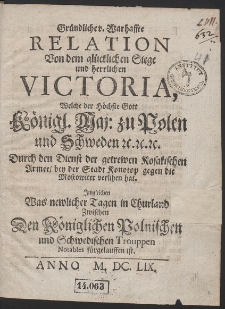 Gründliche v. Warhaffte
RELATION
Von dem glücklichen Siege
und herrlichen
VICTORIA,
Welche der Höchste Gott
Königl. Maj: zu Polen
und Schweden ꝛc. ꝛc. ꝛc.
Durch den Dienst der getrewen Kosakischen
Armee/ bey der Stadt Konotop gegen die
Moskowiter verliehen hat.
Imgleichen
Was newlicher Tagen in Churland
Zwischen
Den Königlichen Polnischen
und Schwedischen Trouppen
Notables fürgelauffen ist.
ANNO M, DC. LIX.
14.063